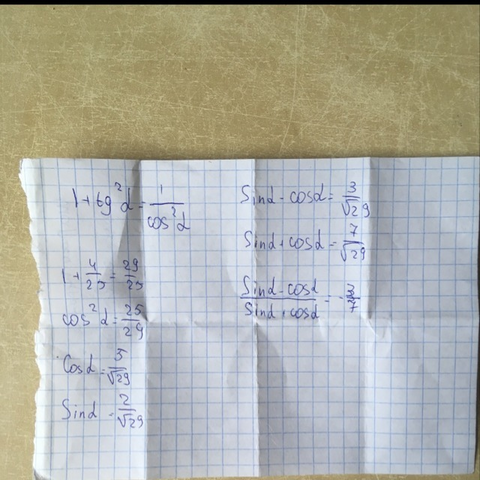 1+tg²α=1/cos²α
1+4/25=29/25
cos²α=25/29
Cosα=5/√29
Sinα=2/√29
Sinα-cosα=3/√29
Sinα+cosα=7/√29
Sinα-cosα/Sinα+cosα=-3/7